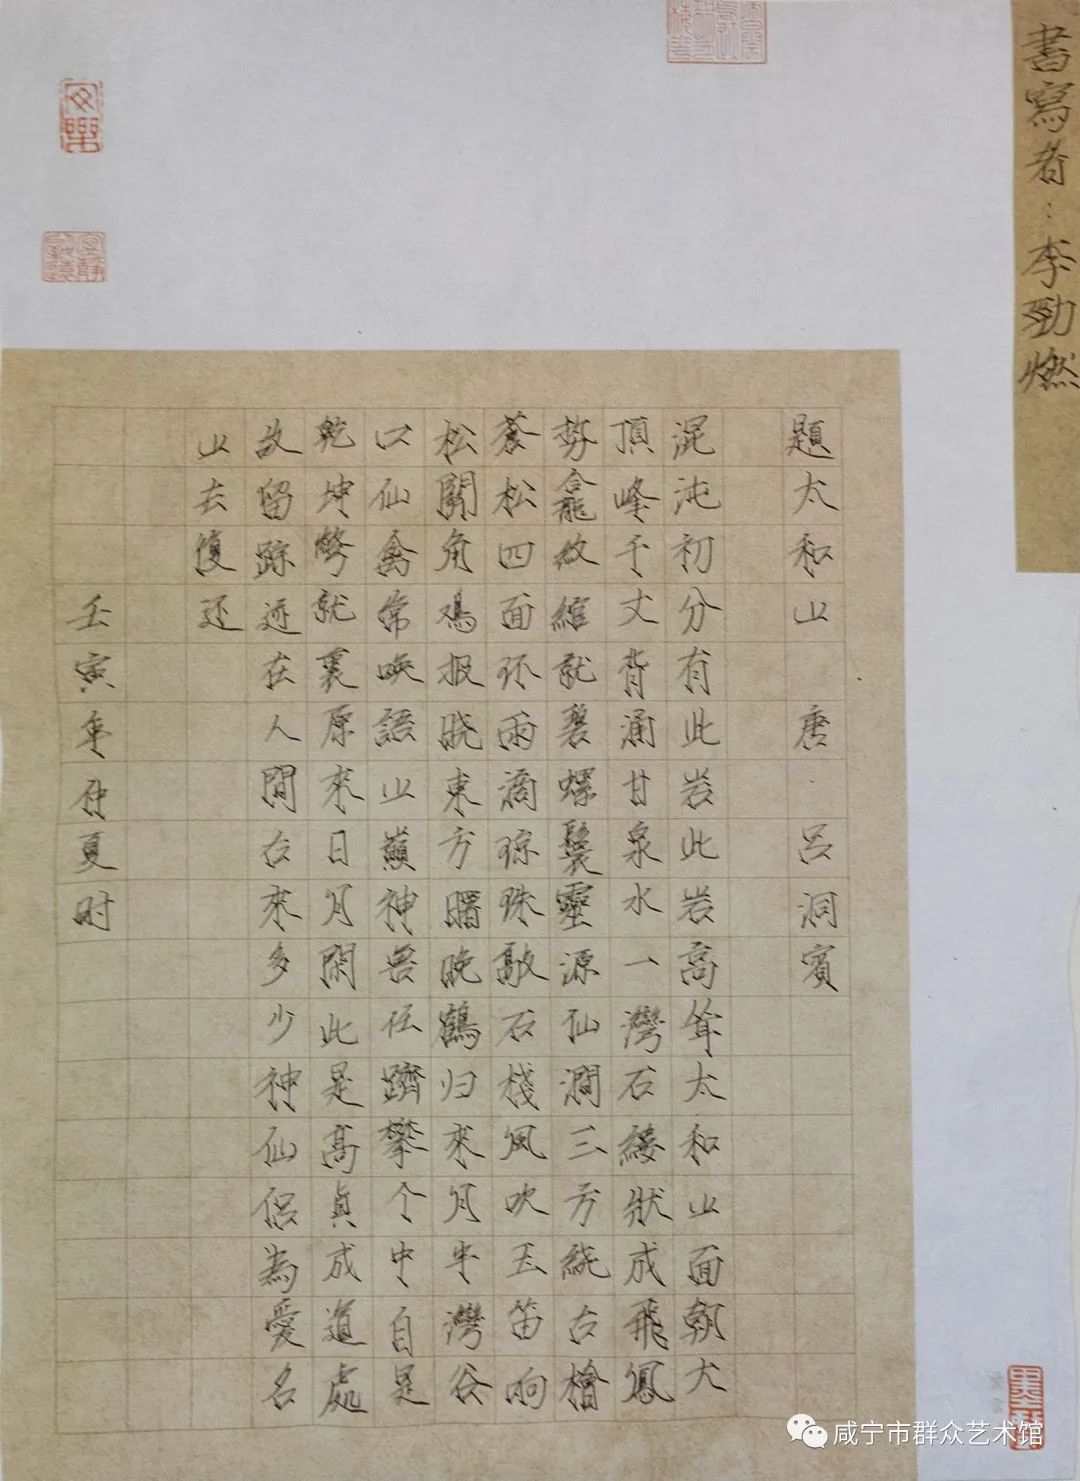 书寫者：李勁燃
題太和山 唐·呂洞賓
混沌初分有此岩此岩高耸太和山面朝大
頂峰千丈背涌甘泉水一灣石缕狀成飛鳳
势龕紋綰就碧螺鬟靈源仙澗三方繞古檜
蒼松四面环雨滴琼珠敲石棧风吹玉笛响
松關角鸡报晓東方曙晚鶴归來月半灣谷
口仙禽常唤語山巔神兽任躋攀个中自是
乾坤就裏原來日月閑此是高真成道處
故留踪迹在人間古來多少神仙侣為愛名
山去復还
壬寅年仲夏时
咸宁市群众艺术馆